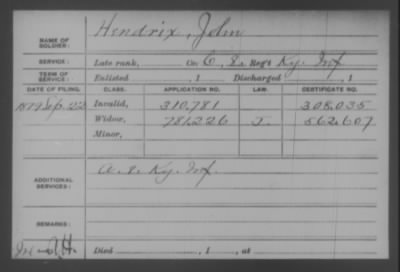 NAME OF SOLDIER: Hendrix, John
SERVICE: Late rank, Co. C, 8 Reg't Ky. Inf.
TERM OF SERVICE: Enlisted , 1 Discharged , 1
DATE OF FILING. CLASS. APPLICATION NO. LAW. CERTIFICATE NO.
1879 Sep. 22 Invalid, 310,781 308,035
Widow, 781,226 562,607
Minor,
ADDITIONAL SERVICES: Ky. Inf.
REMARKS:
Died , 1 , at